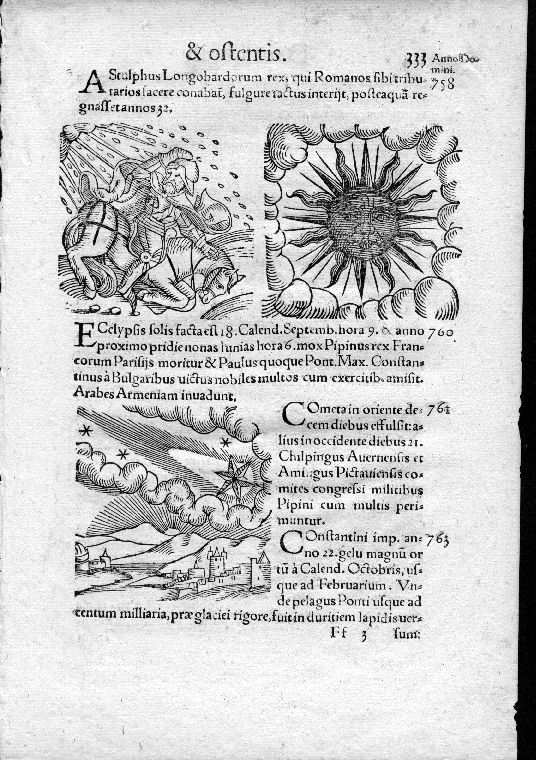 & ostentis. 333 Anno Do-
mini.
AStulphus Longobardorum rex, qui Romanos sibi tribu- 758
tarios facere conabat̃, fulgure tactus interijt, posteaquã re-
gnasset annos 32.
ECclypsis solis facta est 18. Calend. Septemb. hora 9. & anno 760
proximo pridie nonas Iunias hora 6. mox Pipinus rex Fran-
corum Parisijs moritur & Paulus quoque Pont. Max. Constan-
tinus à Bulgaribus uictus nobiles multos cum exercitib. amisit.
Arabes Armeniam inuadunt.
COmeta in oriente de- 761
cem diebus effulsit: a-
lius in occidente diebus 21.
Chilpingus Auernensis et
Amingus Pictauiensis co-
mites congressi militibus
Pipini cum multis peri-
muntur.
COnstantini imp. an- 763
no 22. gelu magnũ or
tũ à Calend. Octobris, us-
que ad Februarium. Vn-
de pelagus Ponti usque ad
centum milliaria, præ glaciei rigore, fuit in duritiem lapidis uer-
Ff 3 sum: